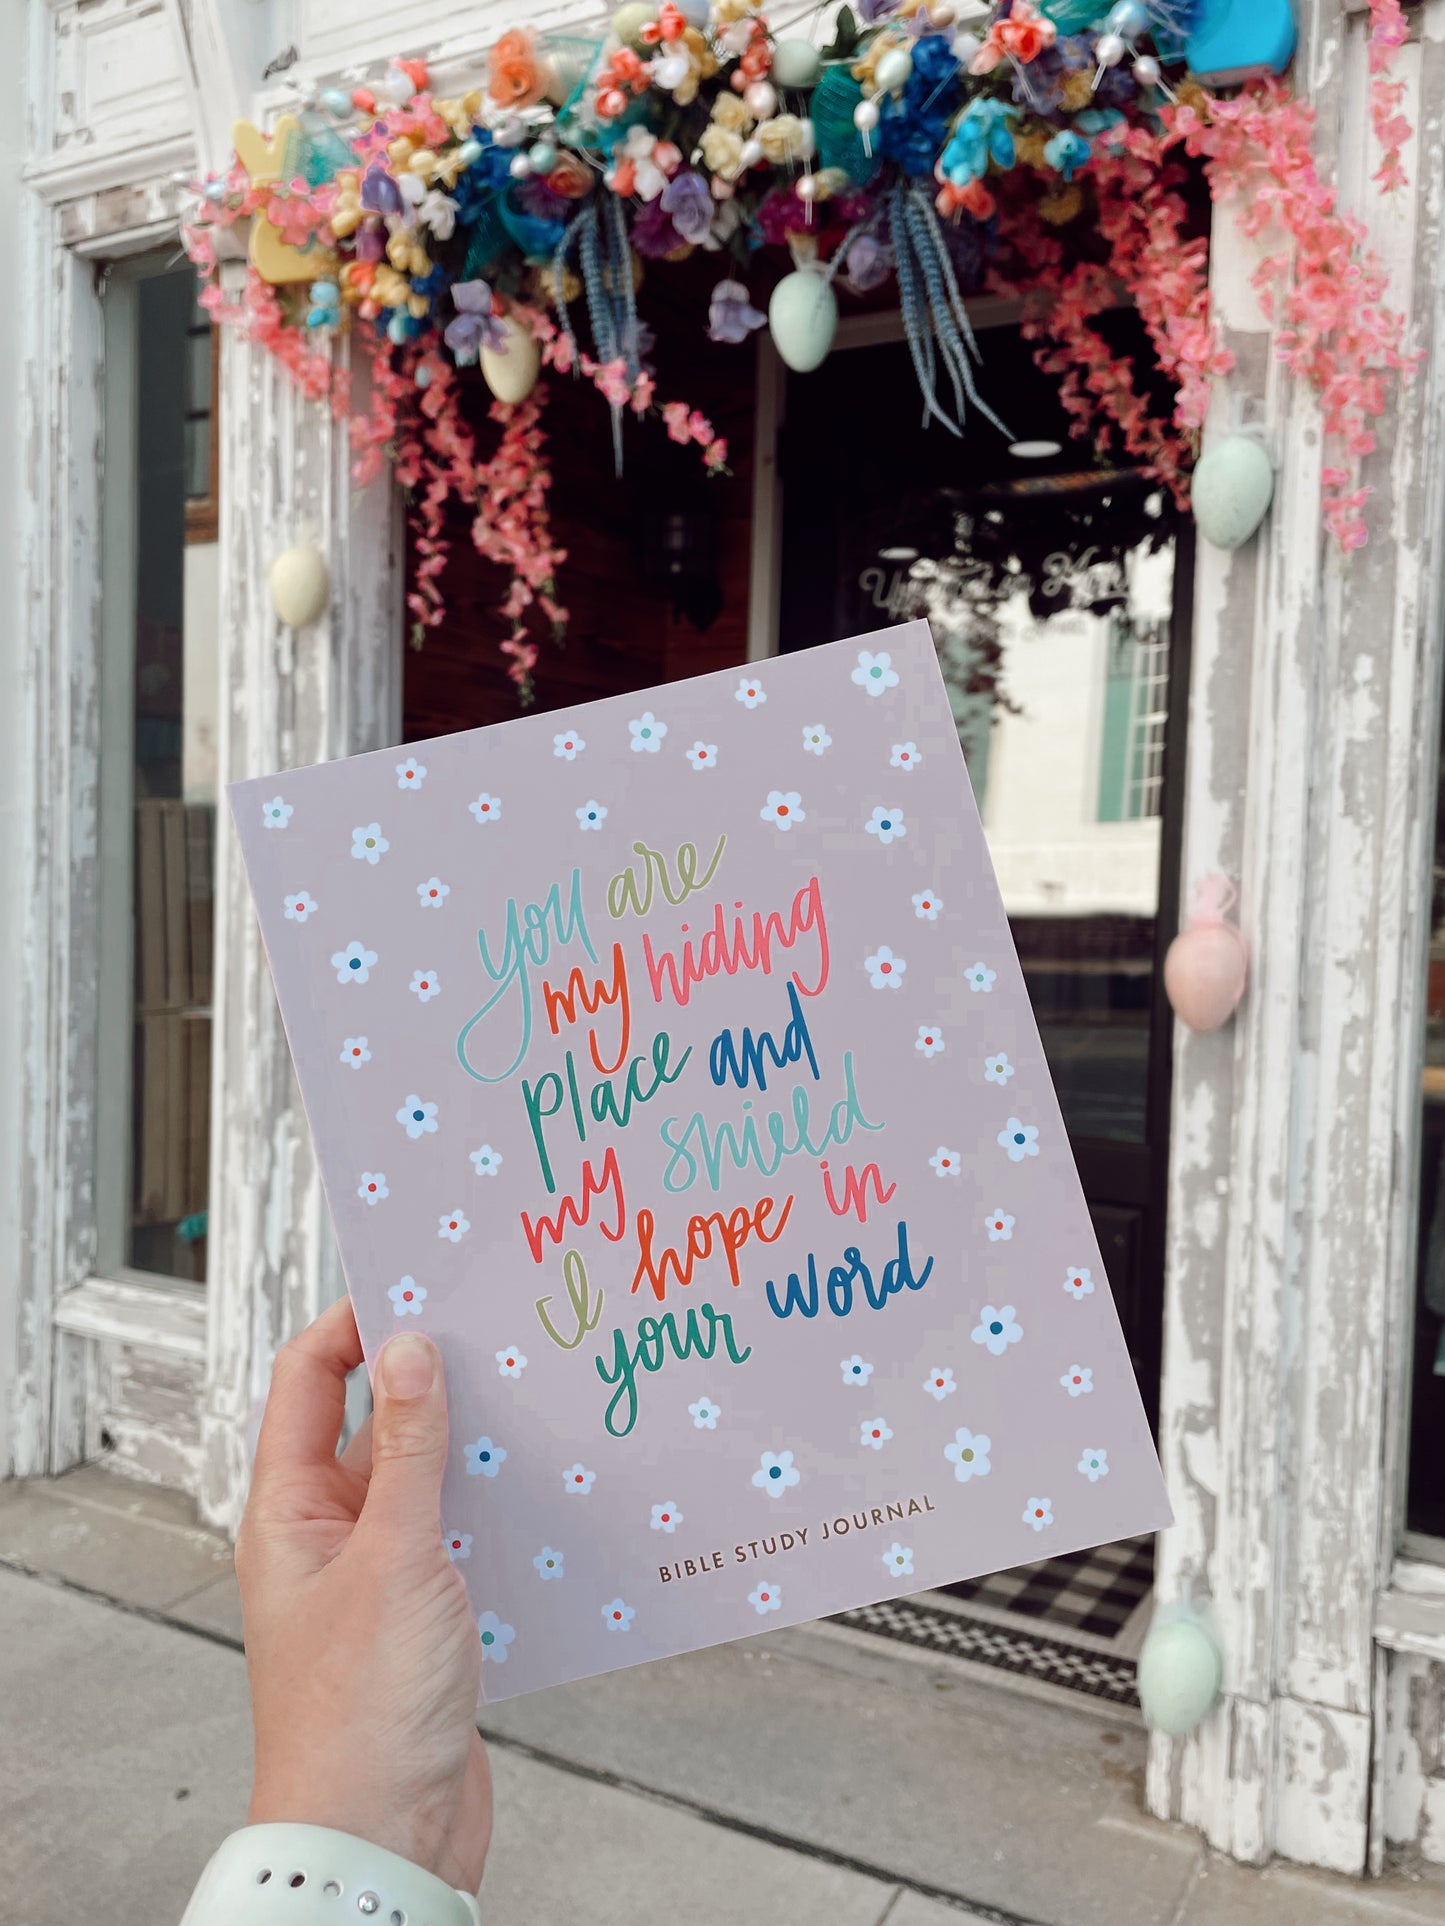 you are
my hiding
place and
my shield
I hope in
your word
BIBLE STUDY JOURNAL